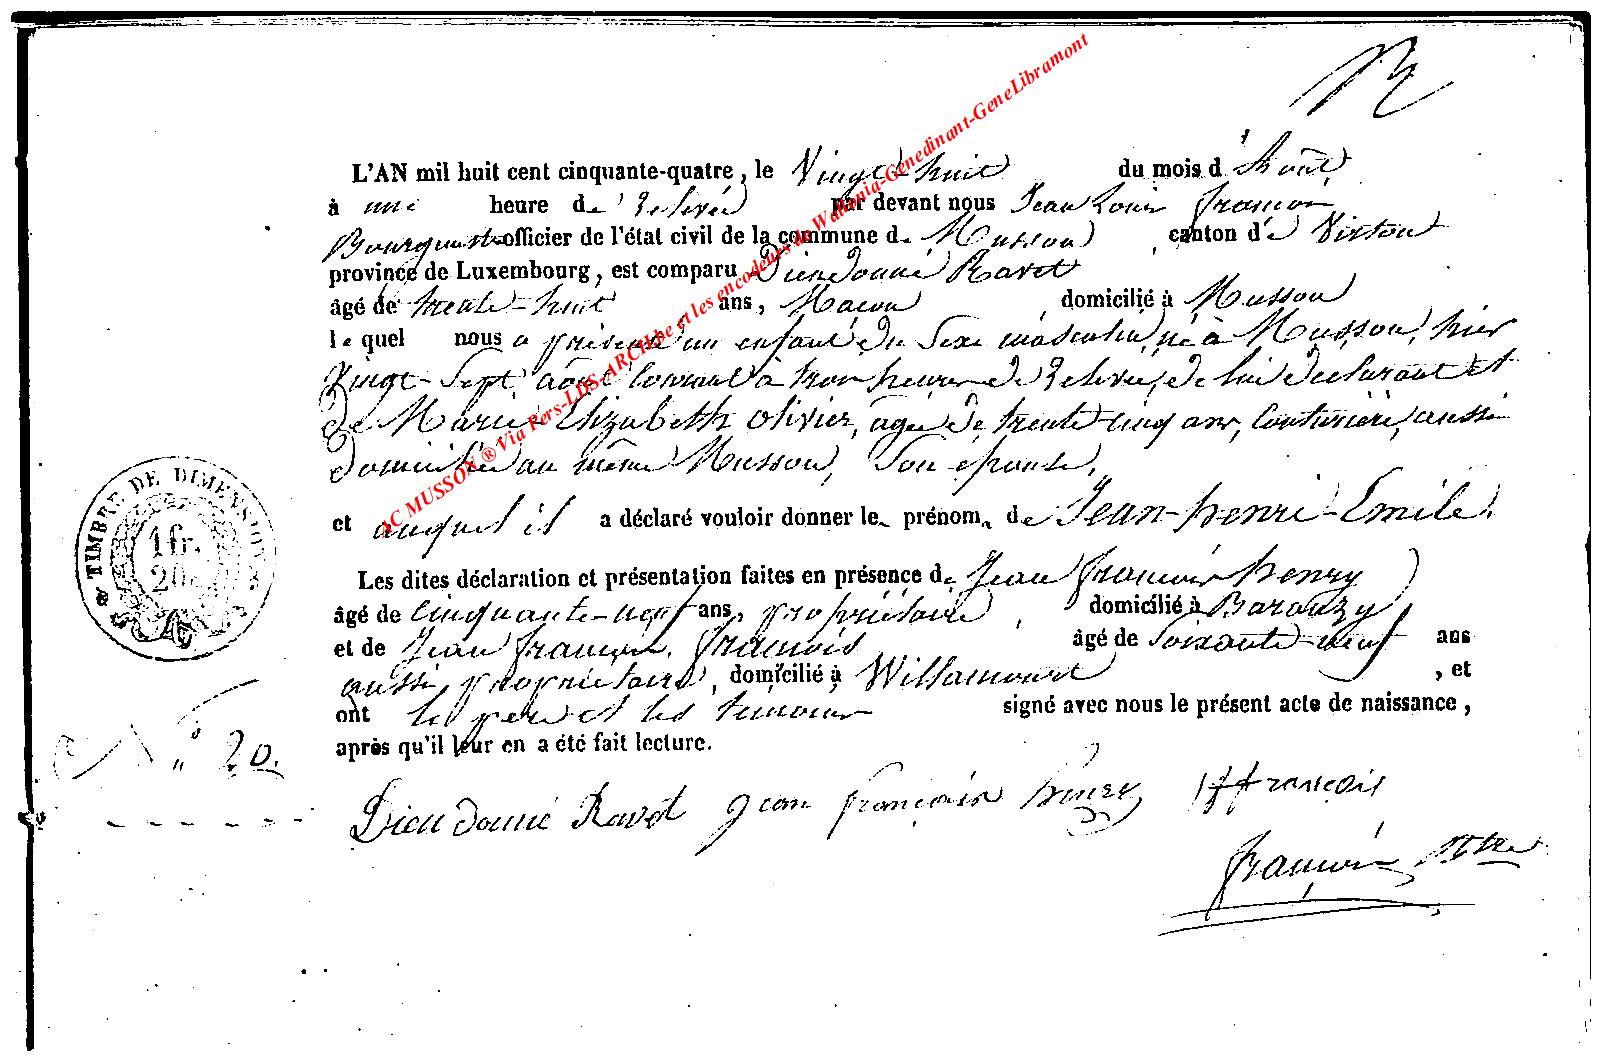 L'AN mil huit cent cinquante-quatre, le Vingt-huit du mois d'Août
à une heure de Relevée par devant nous Jean Louis françois
Bourguestre officier de l'état civil de la commune de Musson canton de Virton
province de Luxembourg, est comparu Dieudonné Ravet
âgé de trente-huit ans, Maçon, domicilié à Musson
lequel nous a présenté un enfant du Sexe masculin, né à Musson, hier
Vingt-Sept août Courant à trois heures de Relevée, de lui déclarant et
de Marie Elizabeth Olivier, agée de trente-cinq ans, Couturière, aussi
domiciliée au même Musson, Son épouse,
et auquel il a déclaré vouloir donner les prénoms de Jean-henri-Emile.
Les dites déclaration et présentation faites en présence de Jean françois henry
âgé de cinquante-neuf ans, propriétaire, domicilié à Baranzy
et de Jean françois françois âgé de Soixante-neuf ans
aussi propriétaire, domicilié à Willancourt, et
ont le père et les témoins signé avec nous le présent acte de naissance,
après qu'il leur en a été fait lecture.
TIMBRE DE DIMENSION
1 fr.
20 c.
N° 20.
Dieudonné Ravet Jean françois henry JFfrançois
françois
AC MUSSON ® Via Pers-LDS-ARCH.be et les encodeurs de Wallonia-Genedinant-GeneLibramont